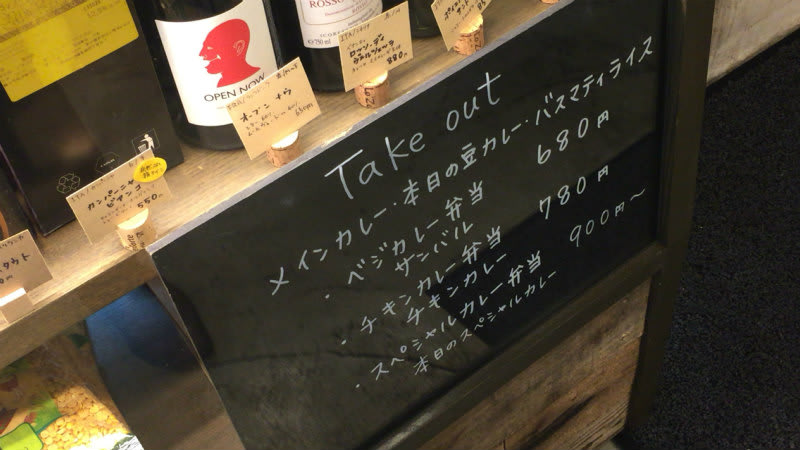 OPEN NOW
ROSSO
750 ml
オープン ナウ
650円
880円
カンパーニャ
ビアンコ
550-
Take out
メインカレー・本日の豆カレー・バスマティライス
・ベジカレー弁当 680円
サンバル
・チキンカレー弁当 780円
チキンカレー
・スペシャルカレー弁当 900円〜
本日のスペシャルカレー